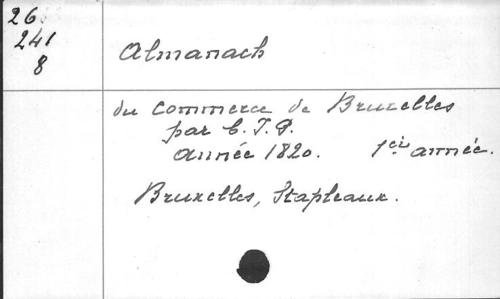 26
241
8
Almanach
du commerce de Bruxelles
par C. J. P.
année 1820. 1ère année.
Bruxelles, Stapleaux.